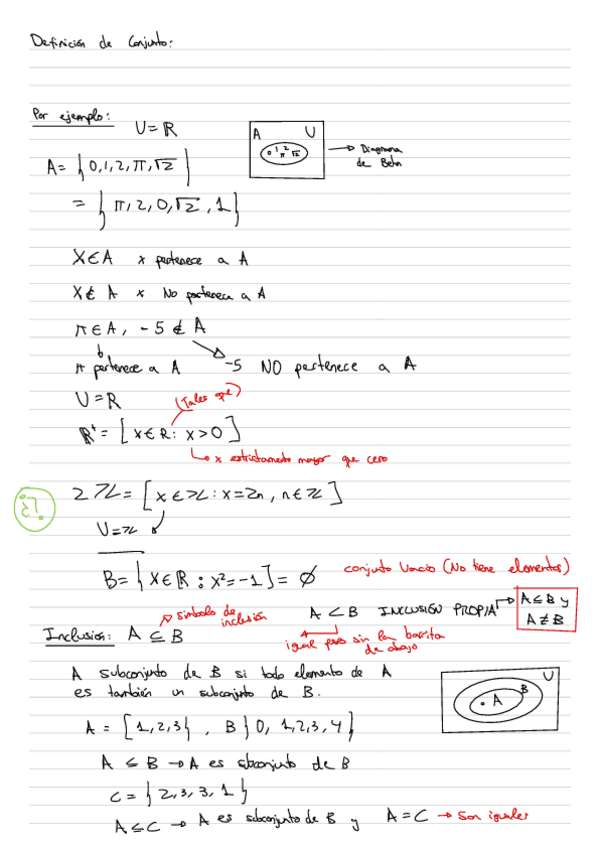 Definición de Conjunto:
Por ejemplo:
U = ℝ
A U
0 1 2 π √2
→ Diagrama de Behn
A = { 0, 1, 2, π, √2 }
= { π, 2, 0, √2, 1 }
X ∈ A x pertenece a A
X ∉ A x No pertenece a A
π ∈ A, -5 ∉ A
π pertenece a A -5 NO pertenece a A
U = ℝ (Tales que)
ℝ⁺ = [ x ∈ ℝ : x > 0 ]
↳ x estrictamente mayor que cero
¿? 2ℤ = [ x ∈ ℤ : x = 2n, n ∈ ℤ ]
U = ℤ
B = { X ∈ ℝ : x² = -1 ] = ∅ conjunto Vacío (No tiene elementos)
símbolo de inclusión
A < B INCLUSIÓN PROPIA → A ⊆ B y A ≠ B
Inclusión: A ⊆ B
igual pero sin la barrita de abajo
A subconjunto de B si todo elemento de A
es también un subconjunto de B.
U B A
A = [ 1, 2, 3 } , B } 0, 1, 2, 3, 4 }
A ⊆ B → A es subconjunto de B
C = { 2, 3, 3, 1 }
A ⊆ C → A es subconjunto de B y A = C → Son iguales